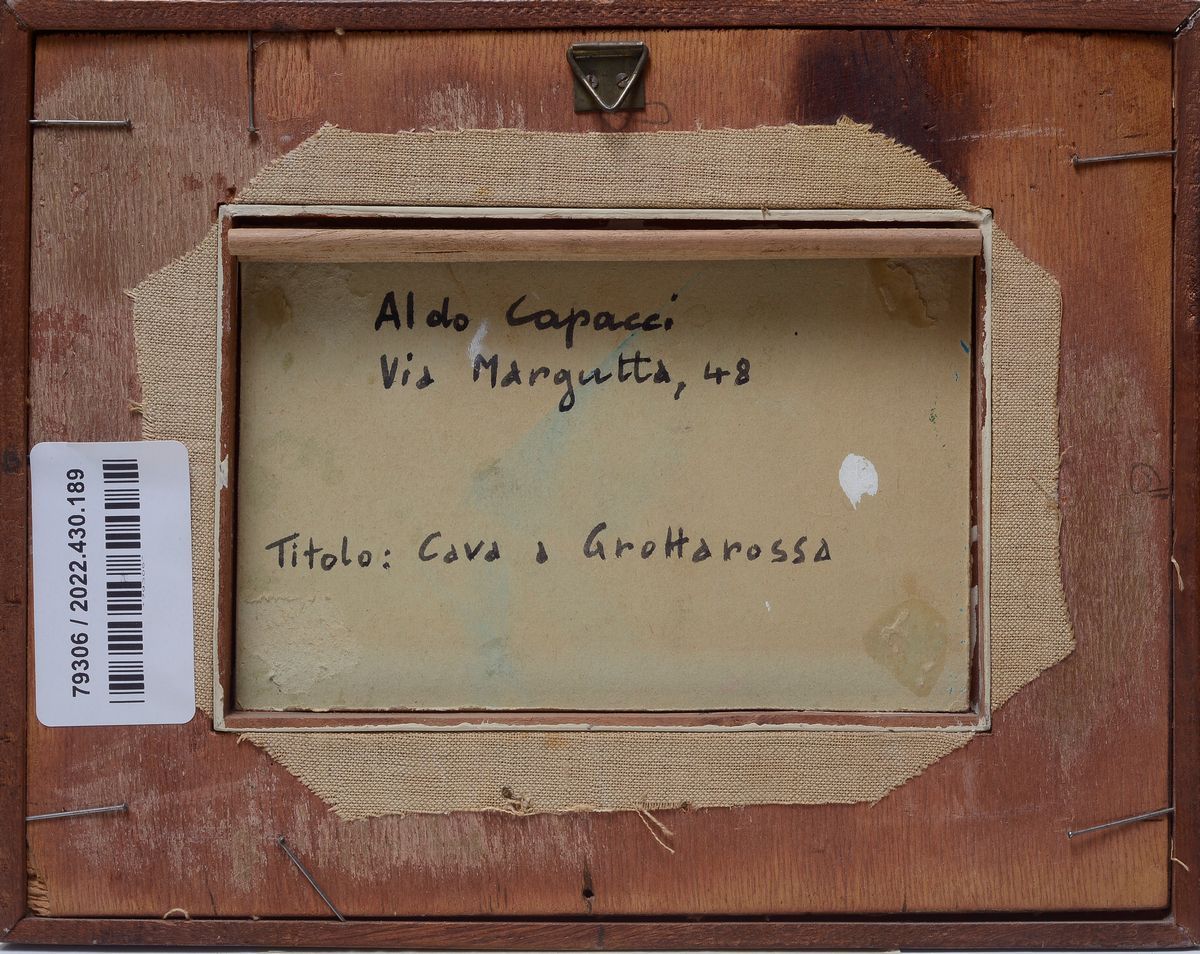 Aldo Capacci
Via Margutta, 48
Titolo: Cava a Grottarossa
79306 / 2022.430.189